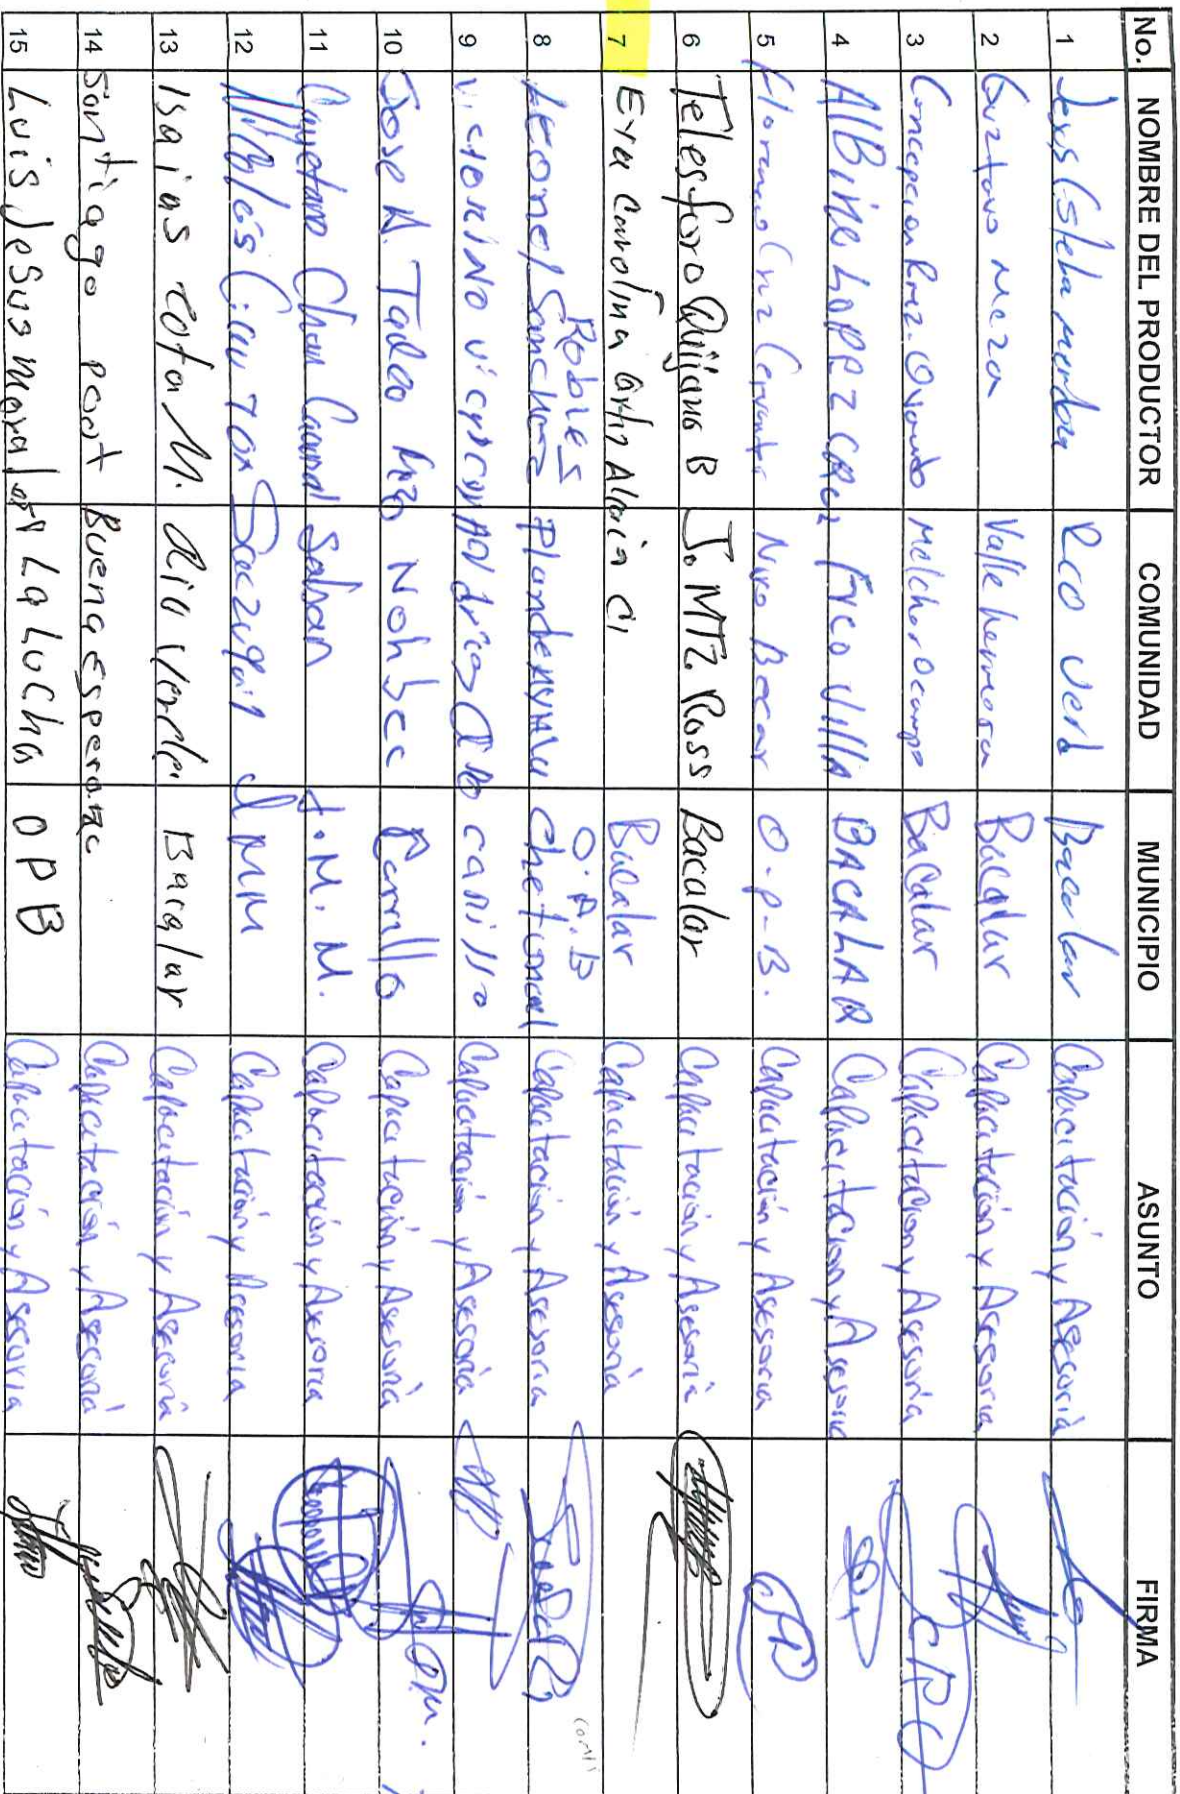 No. NOMBRE DEL PRODUCTOR COMUNIDAD MUNICIPIO ASUNTO FIRMA
1 Jesus Esteba mendoza Rco Verd Bacalar Capacitación y Asesoria
2 Guztavo Meza Valle hermosa Bacalar Capacitación y Asesoria
3 Concepcion Prez. Ovando Melchor Ocampo Bacalar Capacitación y Asesoria
4 AlBiNo LOPPZ CRUz Frco Villa BACALAR Capacitación y Asesoria
5 Florencio Cruz Cervantes Nvo Becar O.P.B. Capacitación y Asesoria
6 Telesforo Quijano B J. MTZ. Ross Bacalar Capacitación y Asesoria
7 Eyra Carolina Bacalar Capacitación y Asesoria
Robles O.P.B
8 Leonel Sanchez Chetumal Capacitación y Asesoria
9 VictoriNo carillo Capacitación y Asesoria
10 Jose A. Tadeo Noh bec Carrillo Capacitación y Asesoria
11 Cayetano Chan Caamal Saban J.M.M. Capacitación y Asesoria
12 JMM Capacitación y Asesoria
13 Isaias cota M. Rio Verde Bacalar Capacitación y Asesoria
14 Santiago poot Buena esperanc Capacitación y Asesoria
15 Luis Jesus morales La Lucha O P B Capacitación y Asesoria